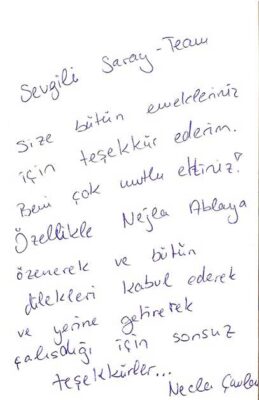 Sevgili Saray-Team
Size bütün emekleriniz
için teşekkür ederim.
Beni çok mutlu ettiniz!
Özellikle Nejla Ablaya
özenerek ve bütün
dilekleri kabul ederek
ve yerine getirerek
çalışdığı için sonsuz
teşekkürler...
Necla